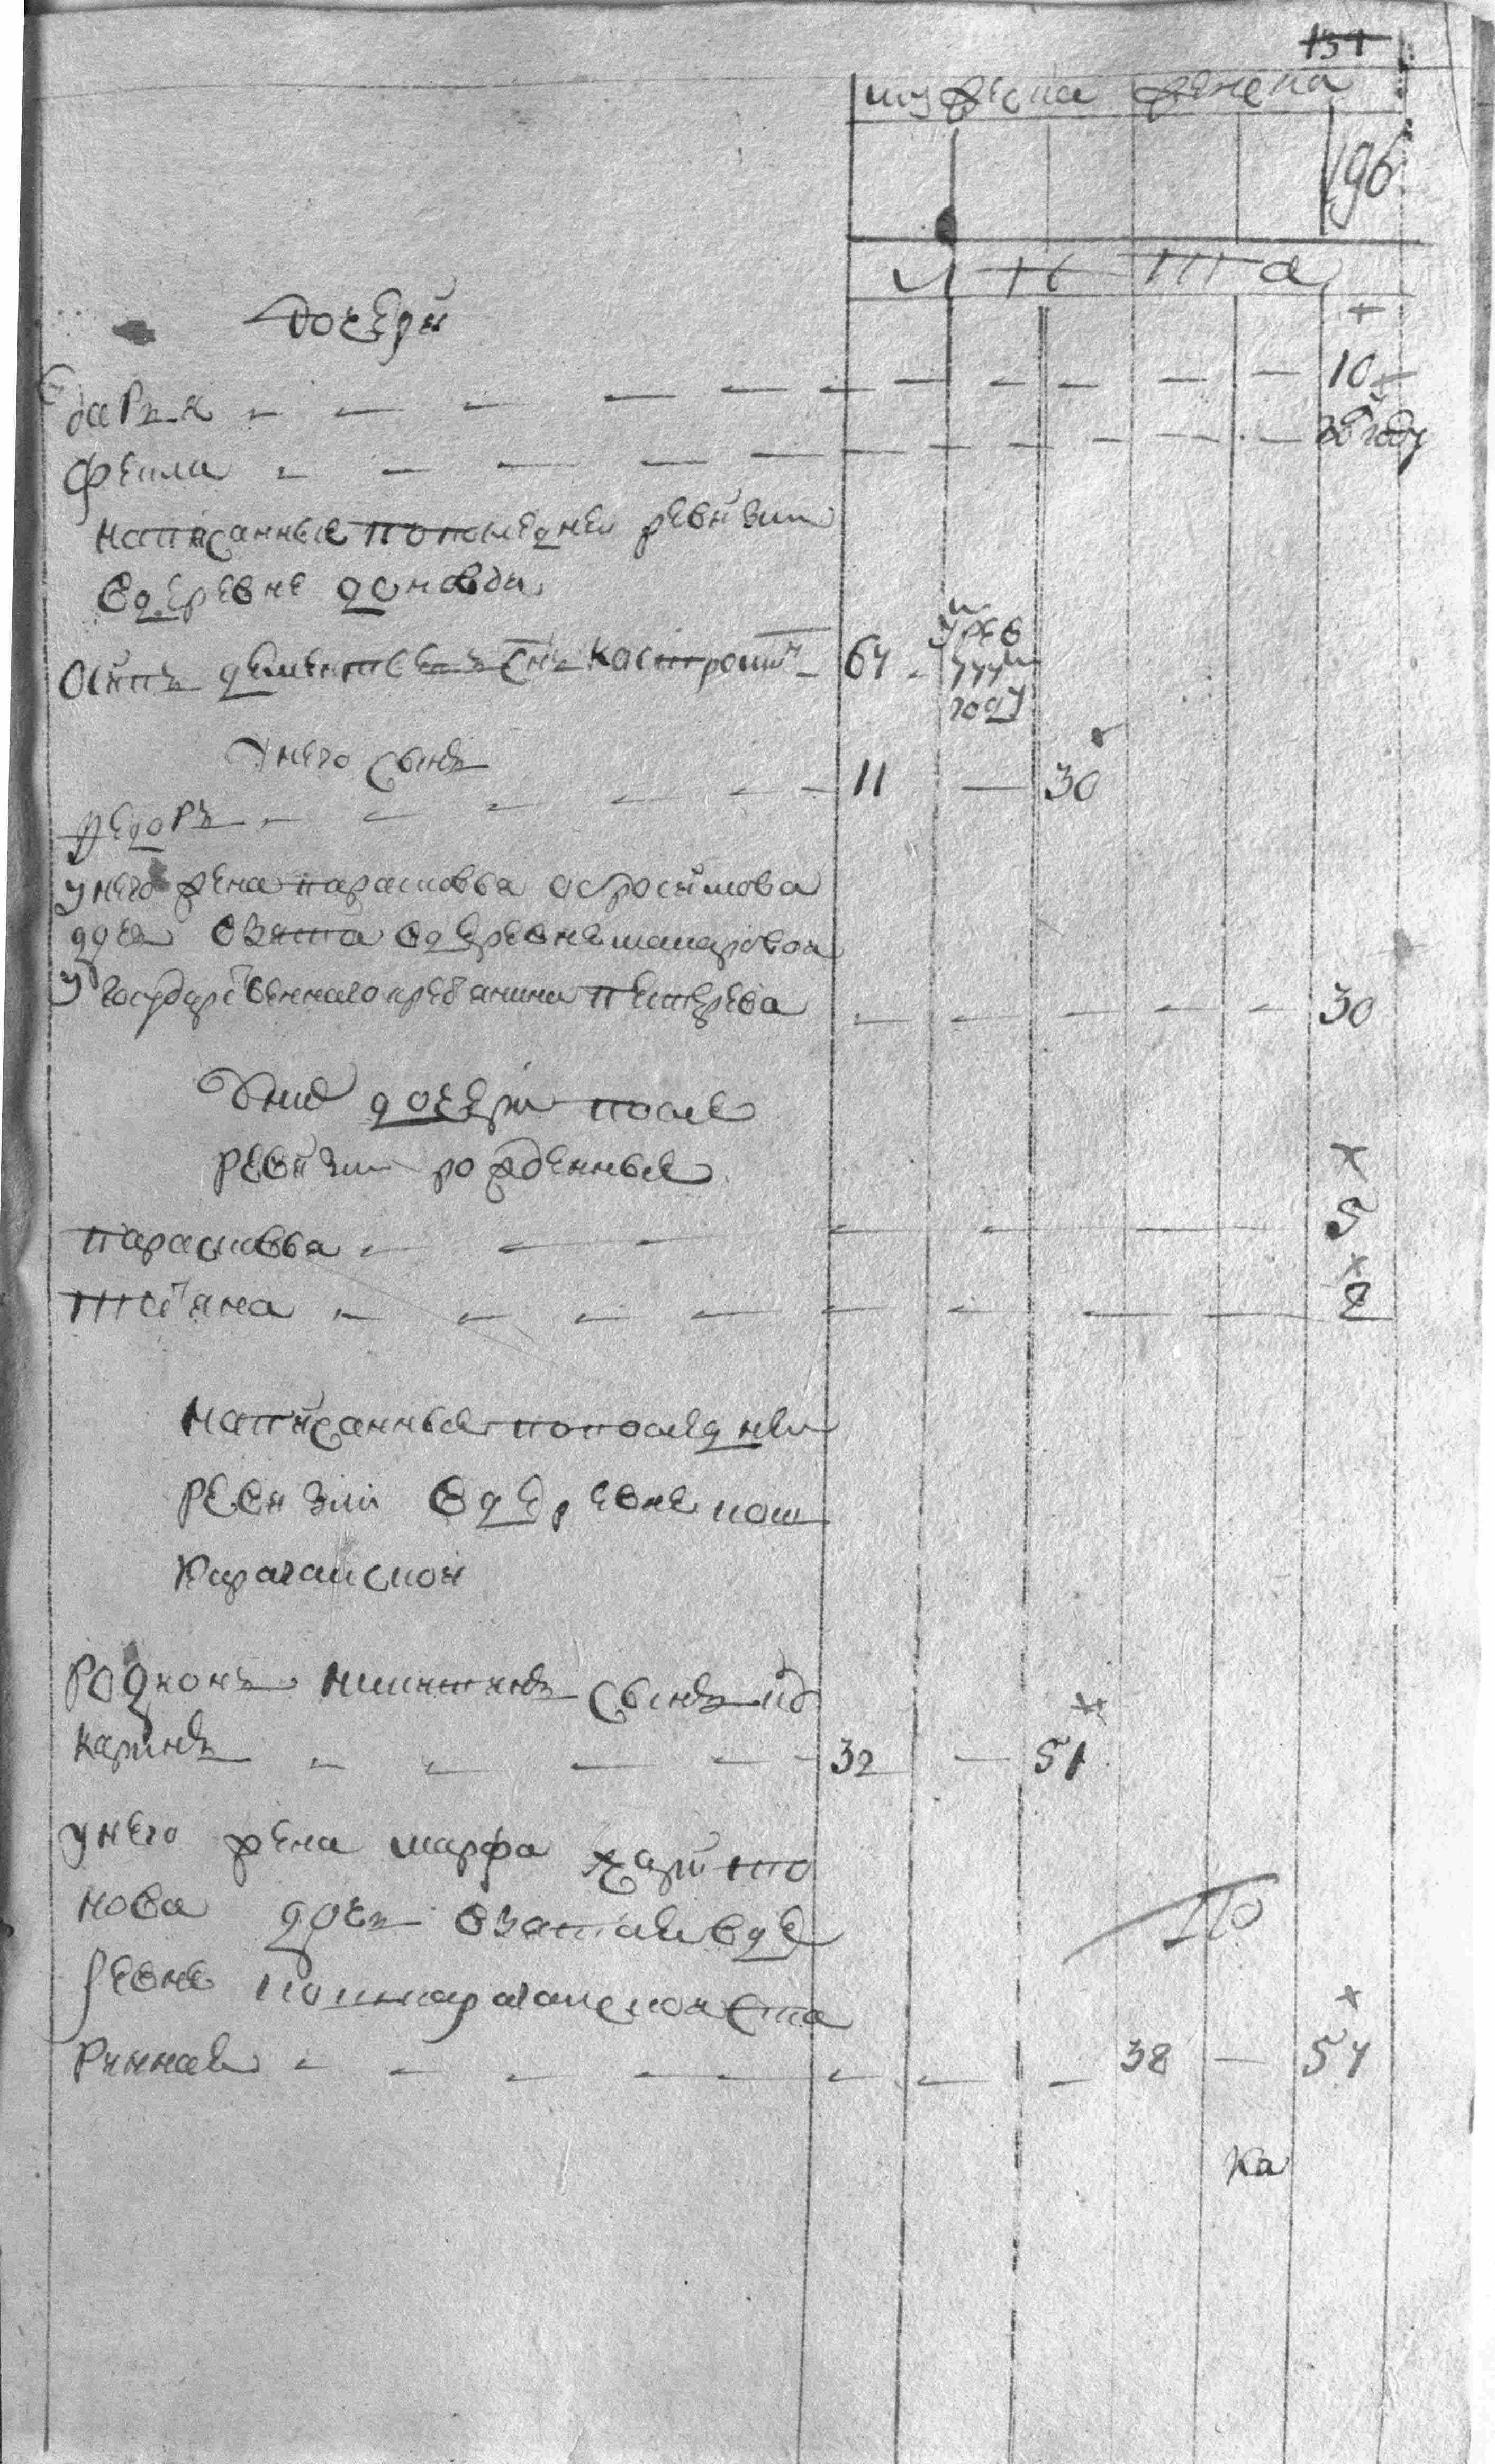 131
мужеска женска
196
л т а
дочери
дарья 10
фекла году
написанные попоследнеи ревизии
вдеревне
Осипъ дементьевъ снъ костроми 67 умре 777м году
унего сынъ
федоръ 11 30
унего жена парасковья
дочь взята вдеревне
у государственного крестьянина 30
уних дочери после
ревизии рожденные
парасковья 5
татьяна 2
написанные попоследнеи
ревизии вдеревне кош
карагаискои
Родионъ никитинъ сынъ
каринъ 32 51
унего жена марфа харито
нова дочь взятая вде
ревне кошкарагаискои ста
ринная 38 57
ка